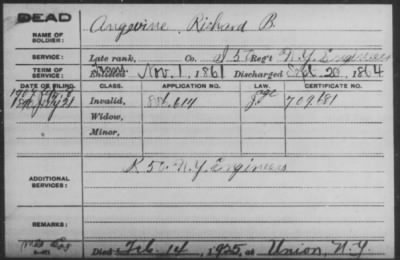 DEAD
NAME OF SOLDIER: Angevine, Richard B.
SERVICE: Late rank, Co. I 50 Reg't N.Y. Engineers
TERM OF SERVICE: Enlisted Nov. 1, 1861 Discharged Sept. 20, 1864
DATE OF FILING. CLASS. APPLICATION NO. LAW. CERTIFICATE NO.
Invalid, 709.681
Widow,
Minor,
ADDITIONAL SERVICES: K 50 N.Y. Engineers
REMARKS:
Died Feb. 14, 1925, at Union, N.Y.